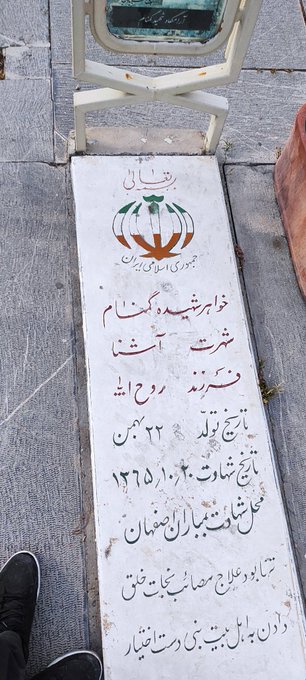 آرامگاه شهید گمنام
بسمه تعالی
جمهوری اسلامی ایران
خواهر شهیده گمنام
شهرت آشنا
فرزند روح الله
تاریخ تولد ۲۲ بهمن
تاریخ شهادت ۱۳۶۵/۱۰/۲۰
محل شهادت بمباران اصفهان
تنها بود علاج مصائب نجات خلق
دادن به اهل بیت نبی دست اختیار